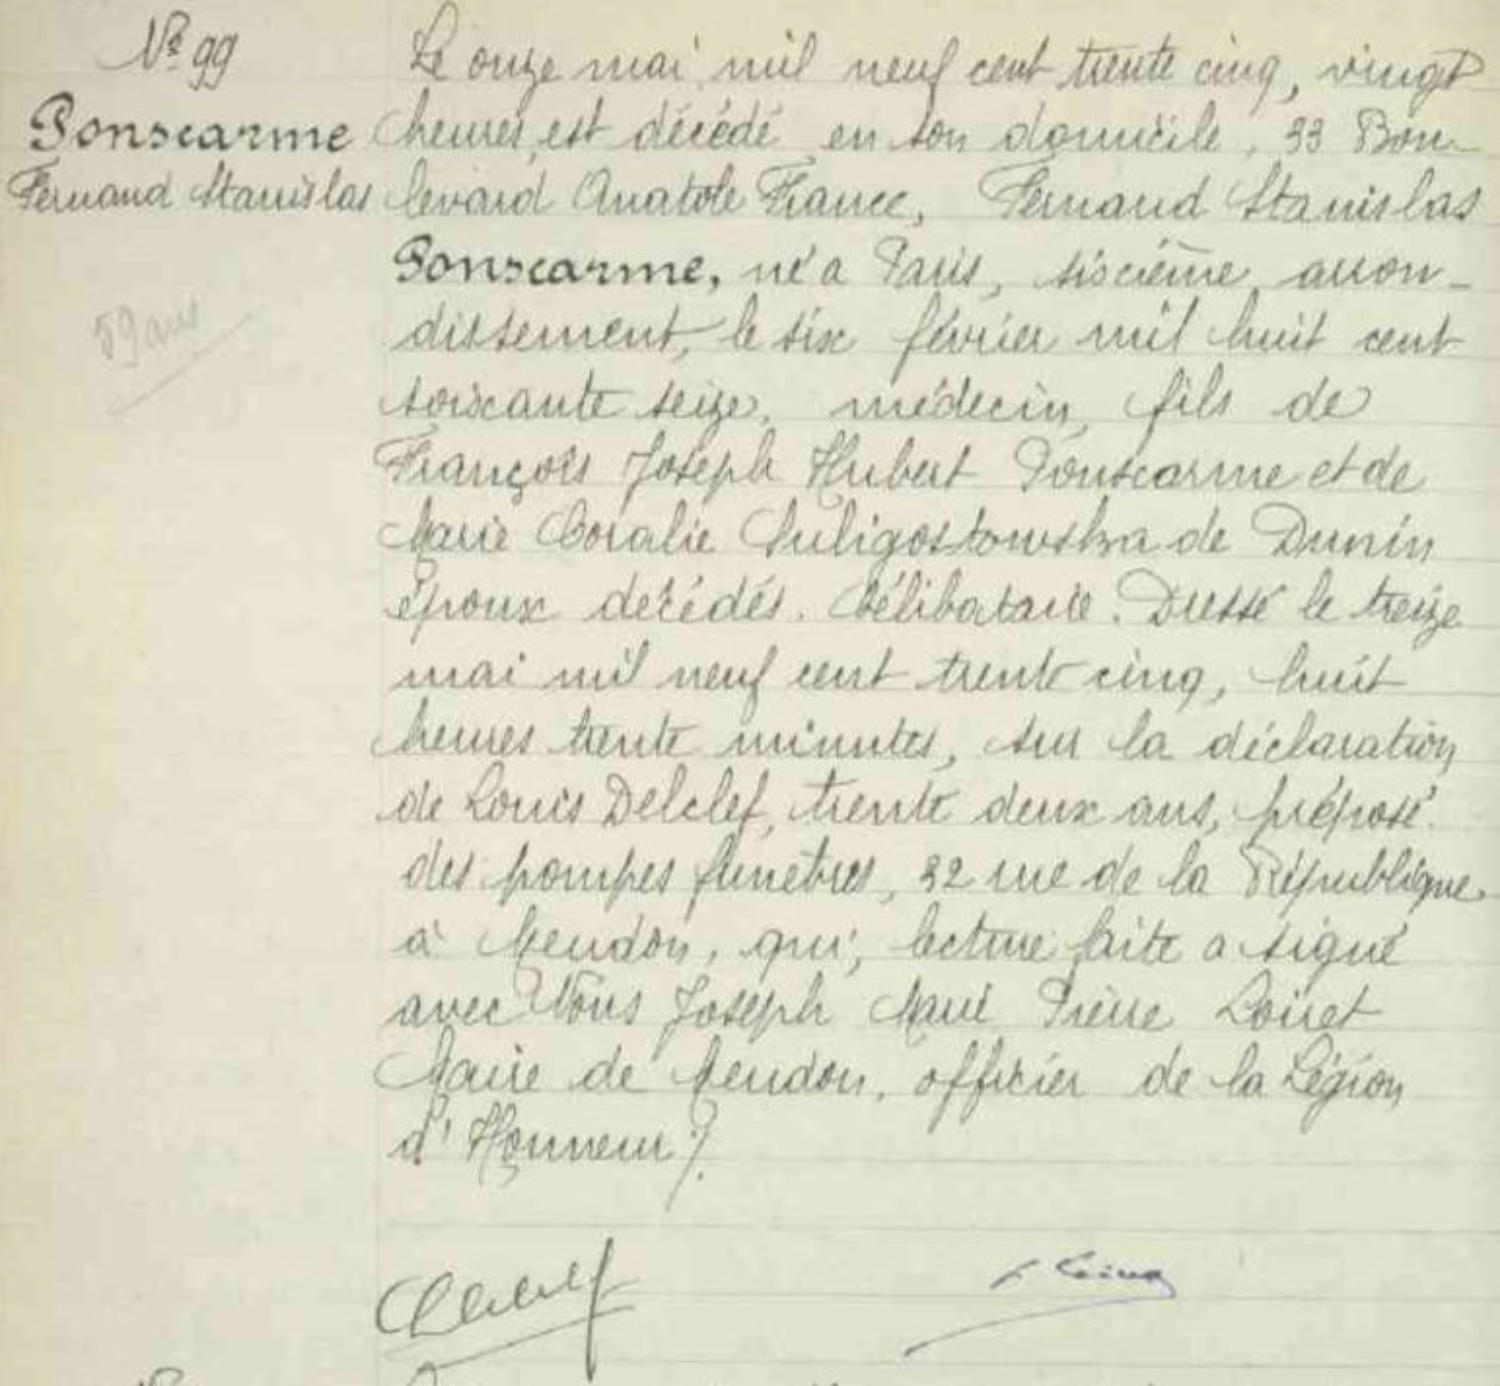 N° 99
Ponscarme
Fernand Stanislas
59 ans
Le onze mai mil neuf cent trente cinq, vingt
heures, est décédé en son domicile, 33 Bou-
levard Anatole France, Fernand Stanislas
Ponscarme, né à Paris, sixième arron-
dissement, le six février mil huit cent
soixante seize, médecin, fils de
François Joseph Hubert Ponscarme et de
Marie Coralie Suligostowska de Dunin
époux décédés. Célibataire. Dressé le treize
mai mil neuf cent trente cinq, huit
heures trente minutes, sur la déclaration
de Louis Delclef, trente deux ans, préposé
des pompes funèbres, 32 rue de la République
à Meudon, qui, lecture faite a signé
avec Nous Joseph Marie Pierre Loiret
Maire de Meudon, officier de la Légion
d'Honneur ⁒